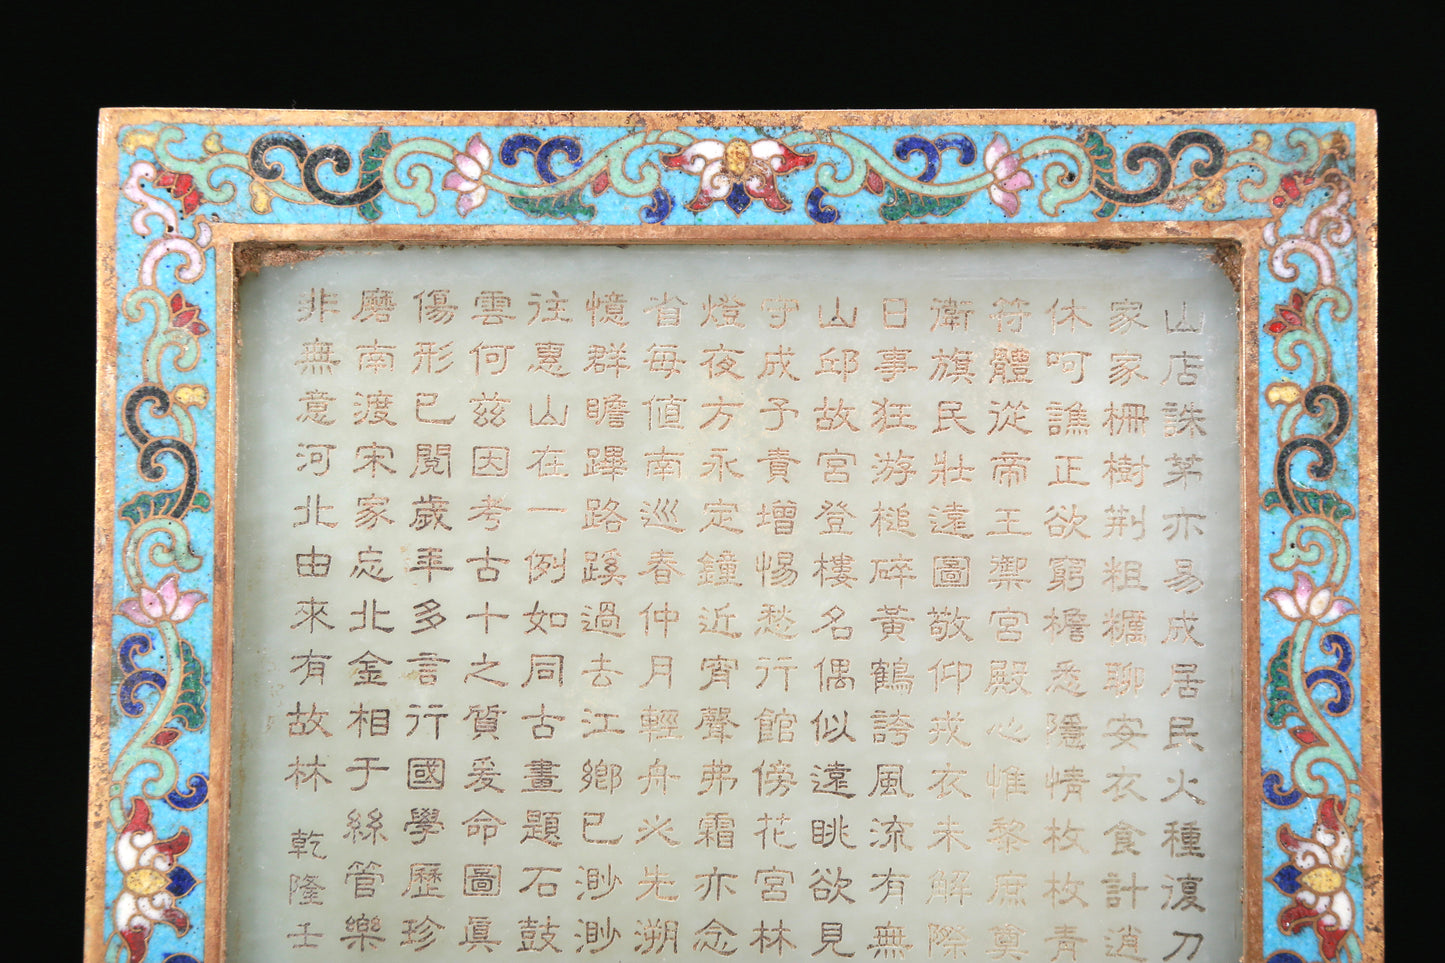 山店誅茅亦易成居民火種復刀
家家柵樹荆粗糲聊安衣食計逍
休呵譙正欲窮檐悉隱情枚枚青
符體從帝王禦宮殿心惟黎庶奠
衛旗民壯遠圖敬仰戎衣未解際
日事狂游槌碎黃鶴誇風流有無
山邱故宮登樓名偶似遠眺欲見
守成予責增惕愁行館傍花宮林
燈夜方永定鐘近宵聲弗霜亦念
省每値南巡春仲月輕舟必先溯
憶群瞻蹕路蹊過去江鄉已渺渺
往惠山在一例如同古畫題石鼓
雲何茲因考古十之質爰命圖眞
傷形已閱歲年多言行國學歷珍
磨南渡宋家忘北金相于絲管樂
非無意河北由來有故林 乾隆壬